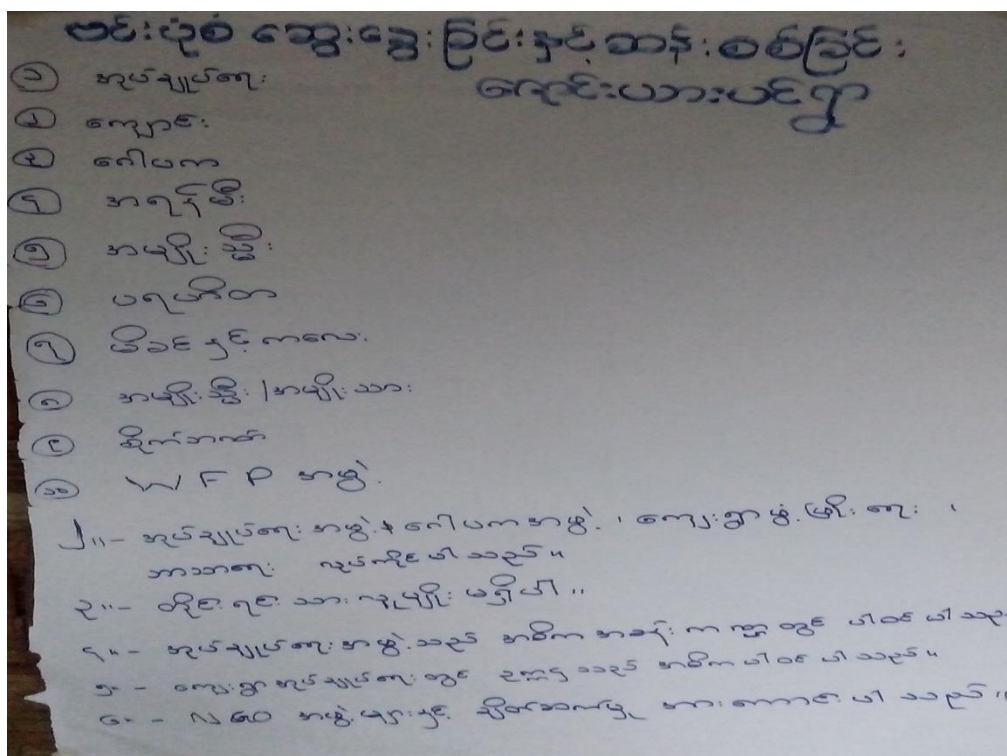 ဗင်းပုံစံ ဆွေးနွေးခြင်းနှင့် ဆန်းစစ်ခြင်း
ကျောင်းယားပင်ရွာ
၁ အုပ်ချုပ်ရေး
၂ ကျောင်း
၃ ဂေါပက
၄ အရန်မီး
၅ အမျိုးသ္မီး
၆ ပရဟိတ
၇ မိခင်နှင့်ကလေး
၈ အမျိုးသ္မီး/အမျိုးသား
၉ စိုက်ဘဏ်
၁၀ WFP အဖွဲ့
၂။ - အုပ်ချုပ်ရေးအဖွဲ့+ဂေါပကအဖွဲ့၊ ကျေးရွာဖွံ့ဖြိုးရေး၊
ဘာသာရေး လုပ်ကိုင်ပါသည်။
၃။ - တိုင်းရင်းသားလူမျိုး မရှိပါ။
၄။ - အုပ်ချုပ်ရေးအဖွဲ့သည် အဓိကအခန်းကဏ္ဍတွင် ပါဝင်ပါသည်
၅။ - ကျေးရွာအုပ်ချုပ်ရေးတွင် ဥက္ကဌသည် အဓိကပါဝင်ပါသည်။
၆။ - NGO အဖွဲ့များနှင့် ချိတ်ဆက်မှု အားကောင်းပါသည်။